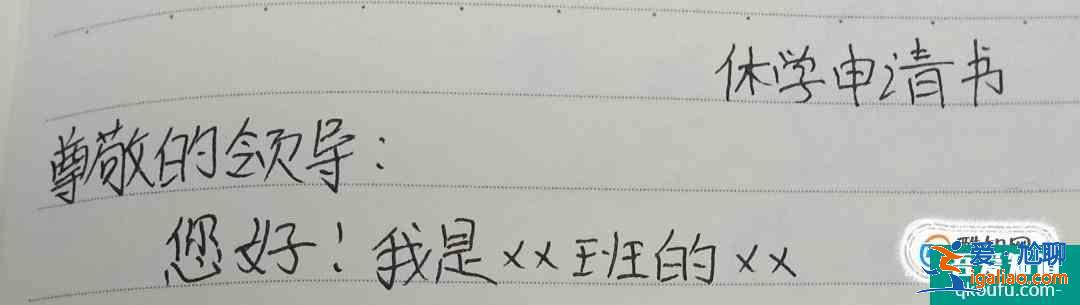 休学申请书
尊敬的领导：
您好！我是xx班的xx
爱尴聊
igaliao.com
qkoufu.com